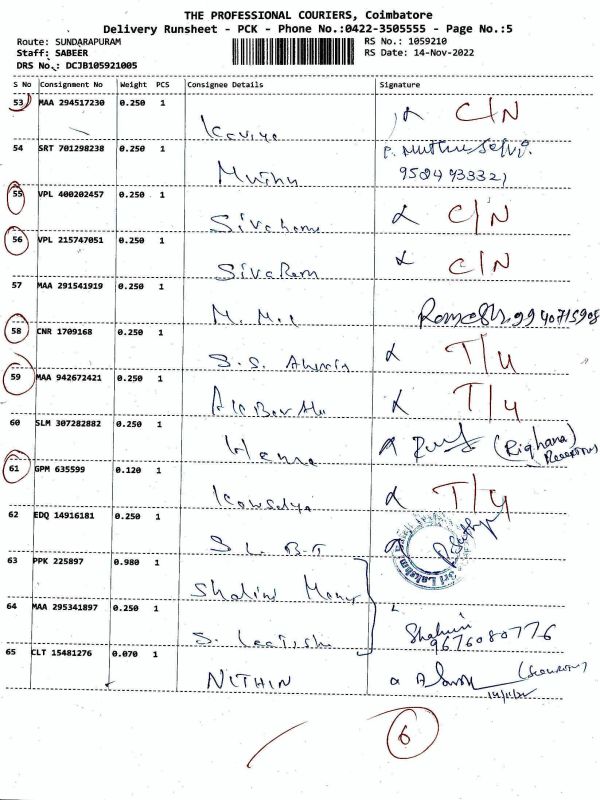 THE PROFESSIONAL COURIERS, Coimbatore
Delivery Runsheet - PCK - Phone No.:0422-3505555 - Page No.:5
Route: SUNDARAPURAM RS No.: 1059210
Staff: SABEER RS Date: 14-Nov-2022
DRS No.: DCJB105921005
S No Consignment No Weight PCS Consignee Details Signature
53 MAA 294517230 0.250 1 C/N
Kaviya
54 SRT 701298238 0.250 1 P. Muthu Selvi.
Muthu
55 VPL 400202457 0.250 1 C/N
56 VPL 215747051 0.250 1 C/N
SivaRam
57 MAA 291541919 0.250 1
Ramesh 9940715908
58 CNR 1709168 0.250 1 T/4
S.S.
59 MAA 942672421 0.250 1 T/4
60 SLM 307282882 0.250 1 (Righana)
Hema
61 GPM 635599 0.120 1 T/4
Kowsalya
62 EDQ 14916181 0.250 1
S.L. B.T
63 PPK 225897 0.980 1
Shalini
64 MAA 295341897 0.250 1
S. 9676080776
65 CLT 15481276 0.070 1
NITHIN
14/11/22
6